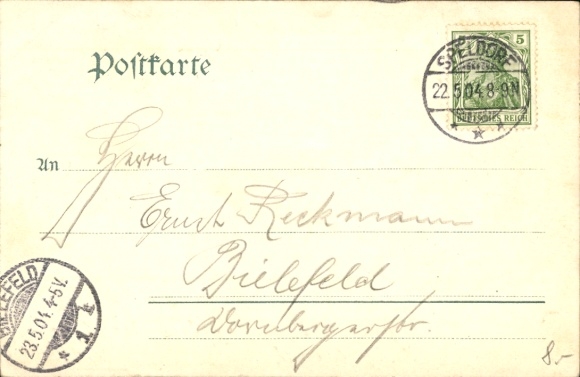 Postkarte
5
SPELDORF
22.5.04.8-9N
* * *
DEUTSCHES REICH
An Herrn
Ernst Reckmann
Bielefeld
Dornbergerstr.
BIELEFELD
23.5.04.4-5V.
* 1 k
8.-